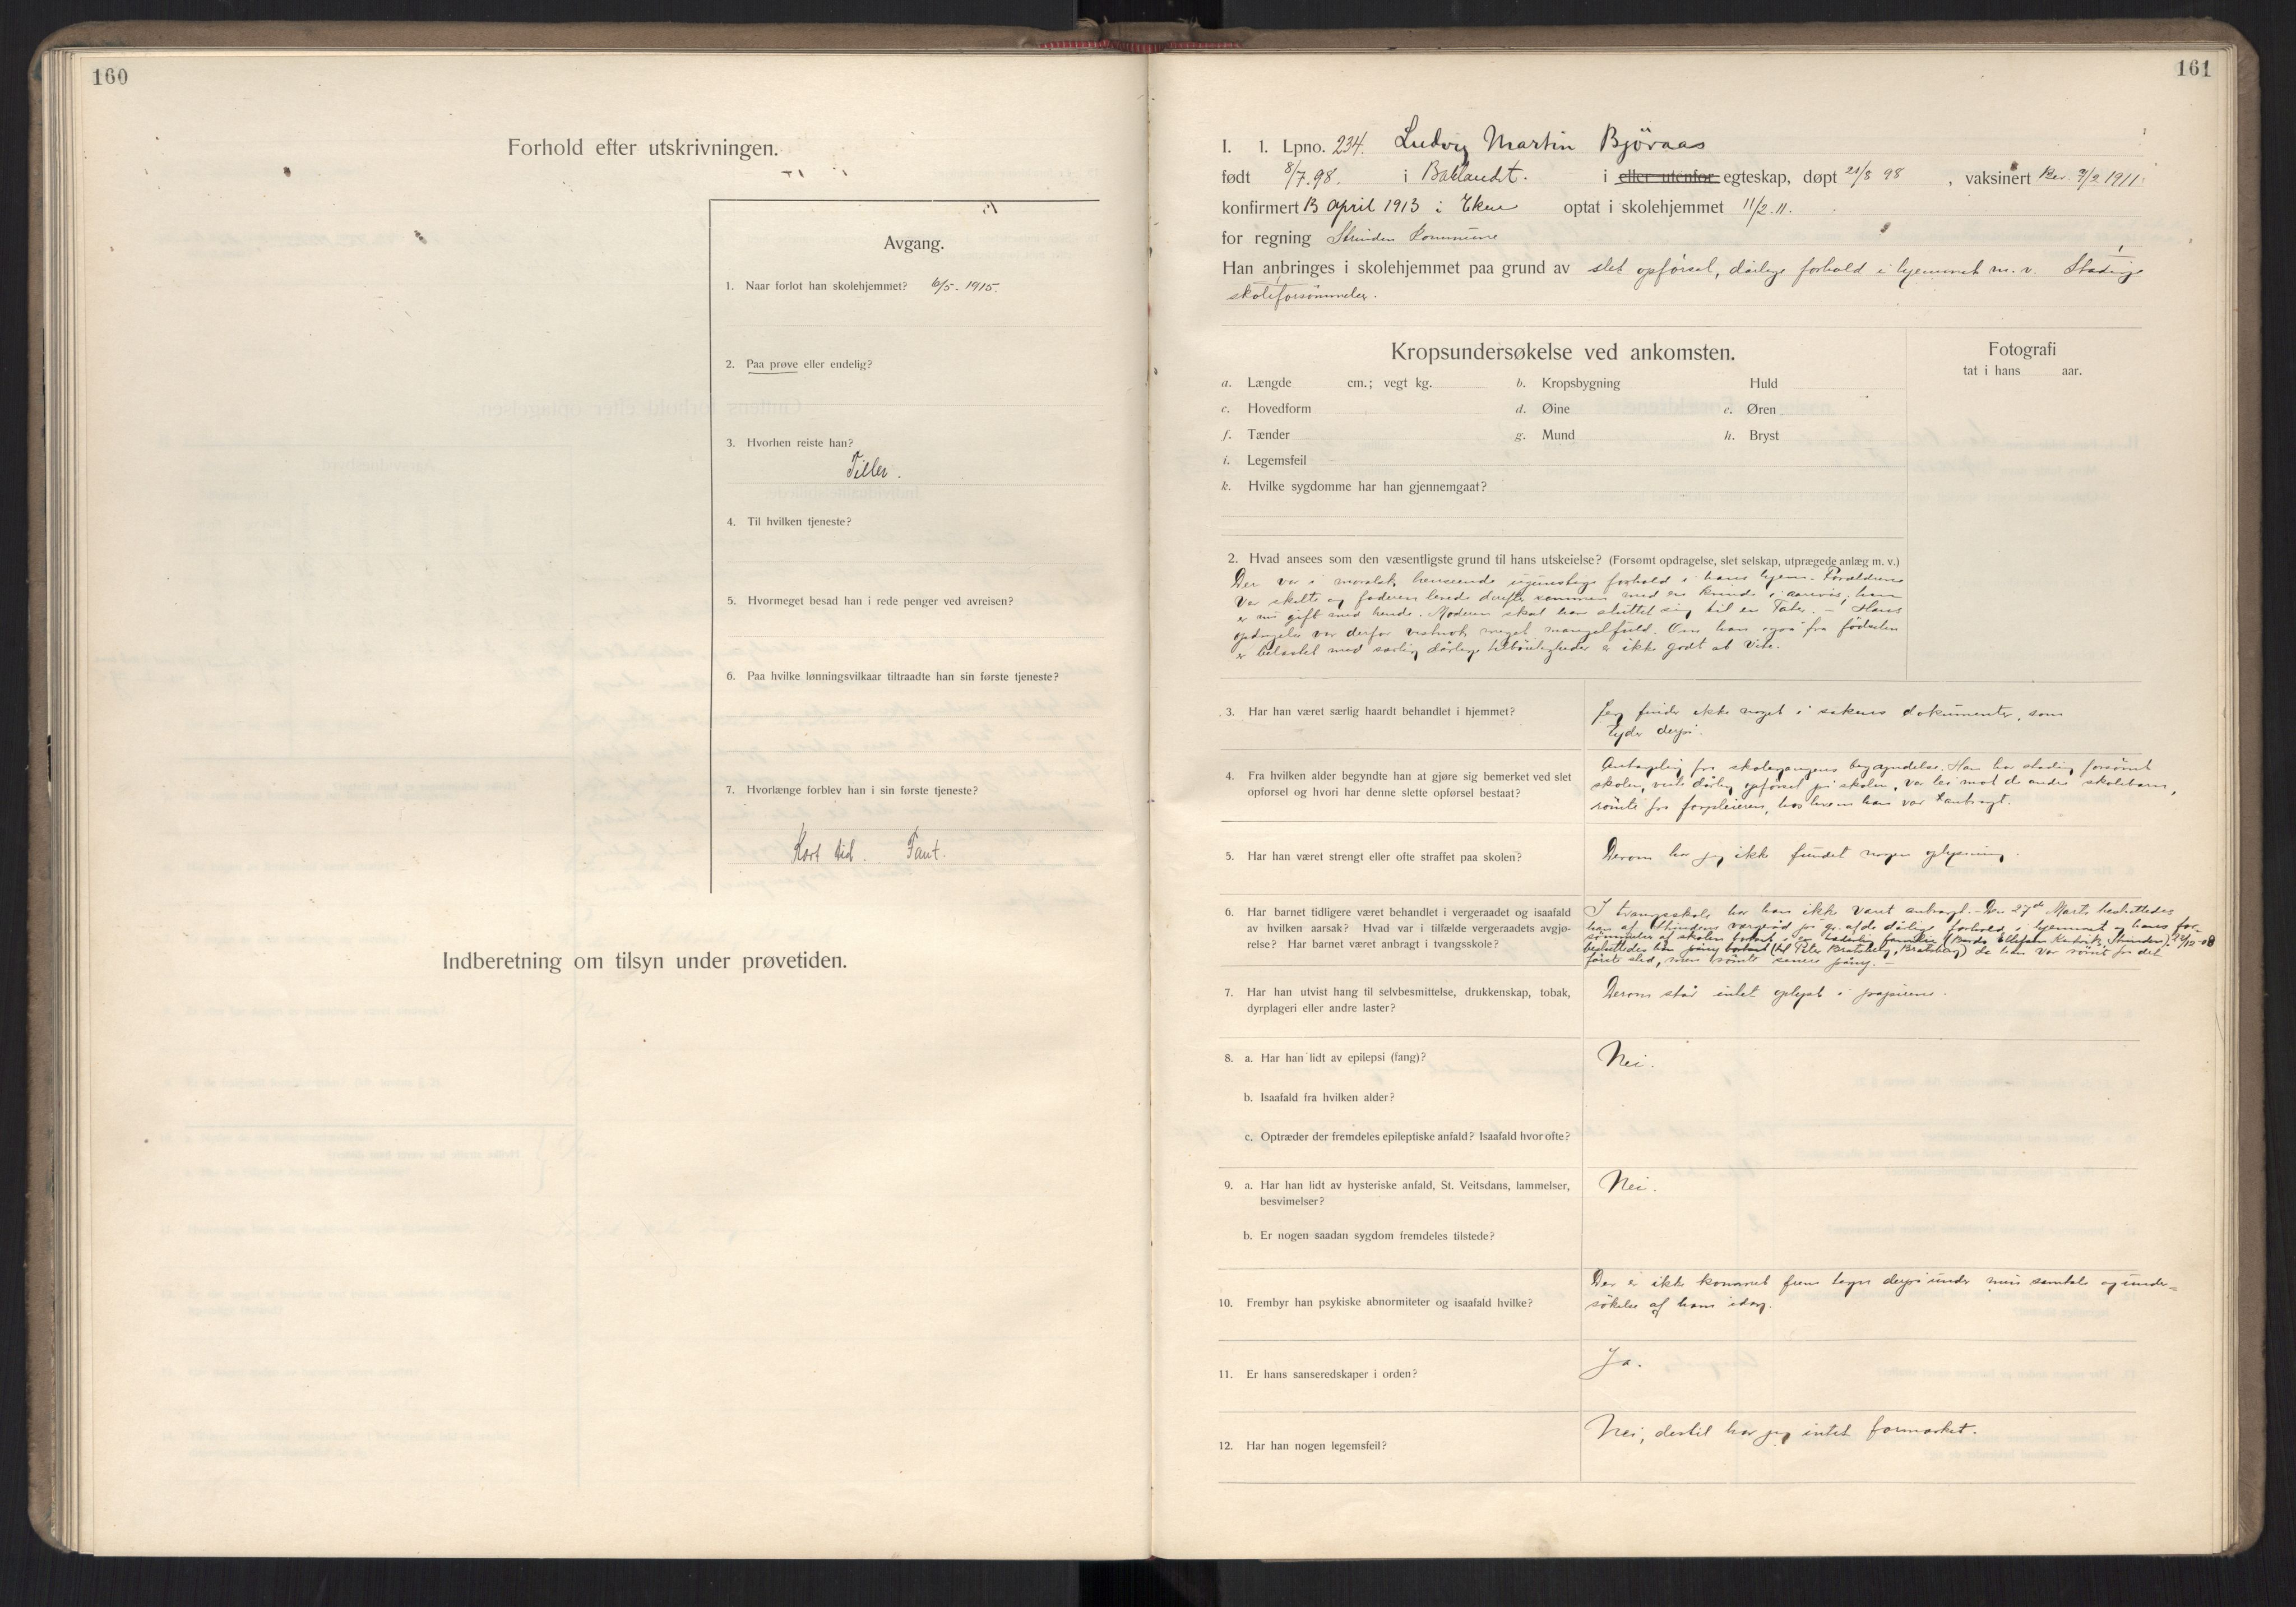 160
Forhold efter utskrivningen.
Avgang.
1. Naar forlot han skolehjemmet? 6/5. 1915.
2. Paa prøve eller endelig?
3. Hvorhen reiste han?
Tiller.
4. Til hvilken tjeneste?
5. Hvormeget besad han i rede penger ved avreisen?
6. Paa hvilke lønningsvilkaar tiltraadte han sin første tjeneste?
7. Hvorlænge forblev han i sin første tjeneste?
Kort tid. Fant.
Indberetning om tilsyn under prøvetiden.
161
I. 1. Lpno. 234. Ludvig Martin Björaas
født 8/7.98. i Baklandet. i eller utenfor egteskap, døpt 21/8 98, vaksinert Rev. 2/2 1911.
konfirmert 13 april 1913 i Ekne optat i skolehjemmet 11/2.11.
for regning Strinden Kommune
Han anbringes i skolehjemmet paa grund av slet opförsel, dårlige forhold i hjemmet m. v. Stadige
skoleforsömmelser.
Kropsundersøkelse ved ankomsten.
Fotografi
tat i hans aar.
a. Længde cm.; vegt kg. b. Kropsbygning Huld
c. Hovedform d. Øine e. Øren
f. Tænder g. Mund h. Bryst
i. Legemsfeil
k. Hvilke sygdomme har han gjennemgaat?
2. Hvad ansees som den væsentligste grund til hans utskeielse? (Forsømt opdragelse, slet selskap, utprægede anlæg m. v.)
Der var i moralsk henseende ugunstige forhold i hans hjem. Forældrene
var skilte og faderen levede derefter sammen med en kvinde i aarevis, han
er nu gift med hende. Moderen skal ha sluttet sig til en Tater. – Hans
opdragelse var derfor vistnok meget mangelfuld. Om han også fra fødselen
er belastet med særlig dårlige tilböieligheder er ikke godt at vite.
3. Har han været særlig haardt behandlet i hjemmet?
Jeg finder ikke noget i sakens dokumenter, som
tyder derpå.
4. Fra hvilken alder begyndte han at gjøre sig bemerket ved slet
opførsel og hvori har denne slette opførsel bestaat?
Antagelig fra skolegangens begyndelse. Han har stadig forsömt
skolen, vist dårlig opförsel på skolen, var lei mot de andre skolebarn,
römte fra forpleieren, hos hvem han var anbragt.
5. Har han været strengt eller ofte straffet paa skolen?
Derom har jeg ikke fundet nogen oplysning.
6. Har barnet tidligere været behandlet i vergeraadet og isaafald
av hvilken aarsak? Hvad var i tilfælde vergeraadets avgjø-
relse? Har barnet været anbragt i tvangsskole?
I tvangsskole har han ikke været anbragt. – Den 27de Marts besluttedes
han af Strindens værgeråd på gr. af de dårlige forhold i hjemmet og hans for-
sömmelser af skolen bortsat i en hæderlig familie 22/12-08
besluttedes han påny bortsat (til Peter Bratsberg, Bratsberg) da han var römt fra det
förste sted, men römte senere påny. –
7. Har han utvist hang til selvbesmittelse, drukkenskap, tobak,
dyrplageri eller andre laster?
Derom står intet oplyst i papirene.
8. a. Har han lidt av epilepsi (fang)?
Nei.
b. Isaafald fra hvilken alder?
c. Optræder der fremdeles epileptiske anfald? Isaafald hvor ofte?
9. a. Har han lidt av hysteriske anfald, St. Veitsdans, lammelser,
besvimelser?
Nei.
b. Er nogen saadan sygdom fremdeles tilstede?
10. Frembyr han psykiske abnormiteter og isaafald hvilke?
Der er ikke kommet frem tegn derpå under min samtale og under-
sökelse af ham idag.
11. Er hans sanseredskaper i orden?
Ja.
12. Har han nogen legemsfeil?
Nei, dertil har jeg intet formærket.